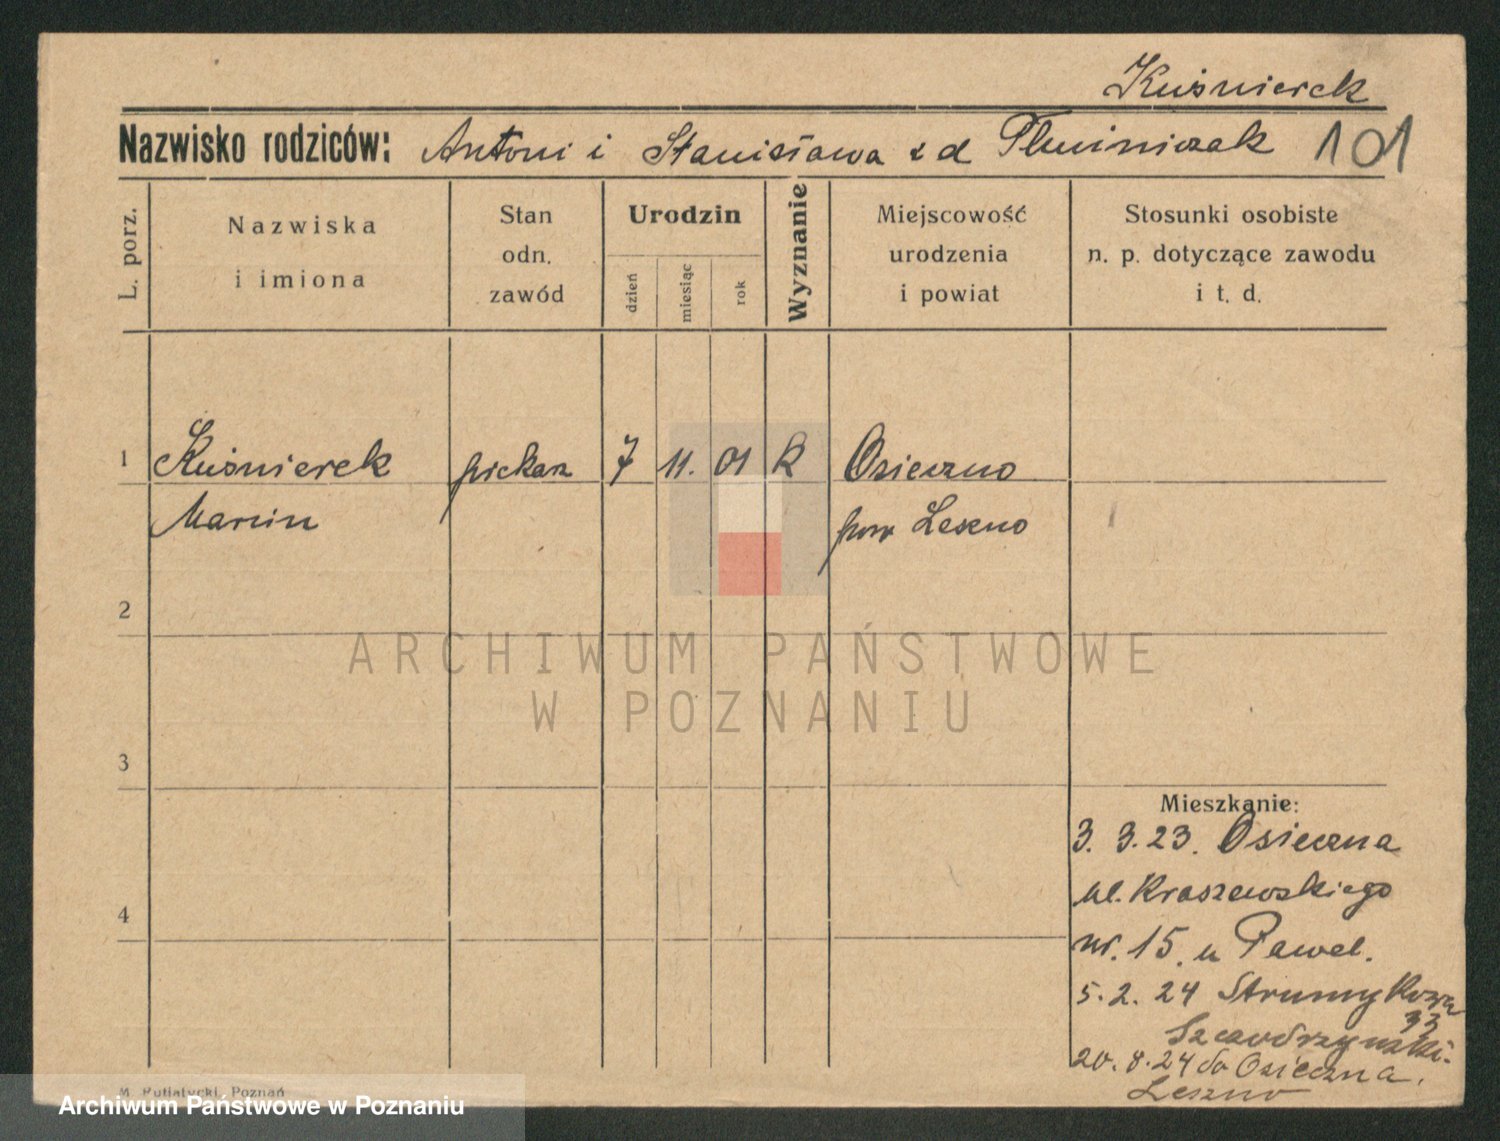 Kuśnierek
Nazwisko rodziców: Antoni i Stanisława z d 101
L. porz.
Nazwiska i imiona
Stan odn. zawód
Urodzin
dzień
miesiąc
rok
Wyznanie
Miejscowość urodzenia i powiat
Stosunki osobiste n. p. dotyczące zawodu i t. d.
1 Kuśnierek piekarz 7 11. 01 k Osieczno
Marcin pow Leszno
2
3
4
Mieszkanie:
3. 3. 23. Osieczna
ul. Kraszewskiego
nr. 15. u Pawel.
5. 2. 24 Strumykowa
33
20. 8. 24 do Osieczna.
Leszno
M. Putiatycki, Poznań
ARCHIWUM PAŃSTWOWE
W POZNANIU
Archiwum Państwowe w Poznaniu